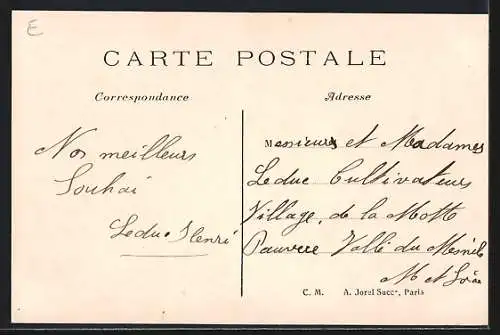 E
CARTE POSTALE
Correspondance
Adresse
Nos meilleurs
Souhai
Leduc Henri
Messieurs et Madames
Leduc Cultivateurs
Village de la Mott
Valli du Mesnil
M et Loire
C. M. A. Jorel Succr, Paris